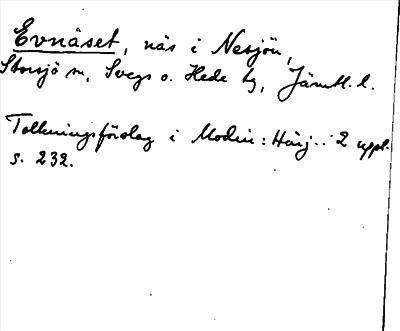 Evnäset, näs i Nesjön,
Storsjö sn, Svegs o. Hede tg, Jämtl. l.
Tolkningsförslag i Modin: Härj.. 2 uppl.
s. 232.